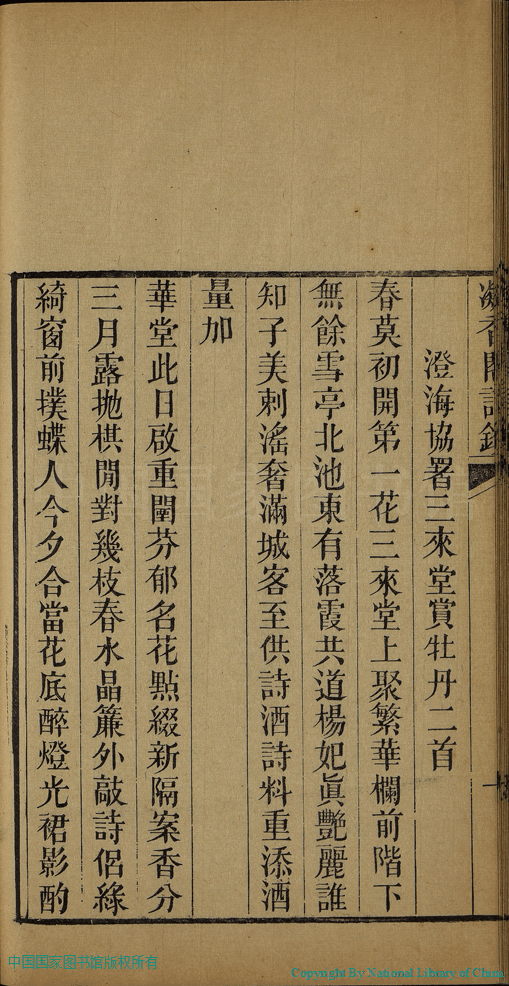 凝香閣詩鈔
澄海協署三來堂賞牡丹二首
春莫初開第一花三來堂上聚繁華欄前階下
無餘雪亭北池東有落霞共道楊妃眞艷麗誰
知子美刺滛奢滿城客至供詩酒詩料重添酒
量加
華堂此日啟重闈芬郁名花點綴新隔案香分
三月露拋棋閒對幾枝春水晶簾外敲詩侶綠
綺窗前撲蝶人今夕合當花底醉燈光裙影酌
中国国家图书馆版权所有
Copyright By National Library of China